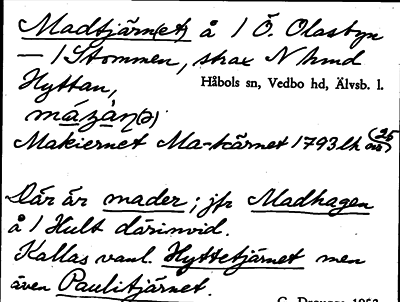 Madtjärn(et) å 1 Ö. Olasbyn
— 1 Stommen, strax N hmd
Hyttan,
Håbols sn, Vedbo hd, Älvsb. l.
Makiernet Ma-kärnet 1793 lh
Där är mader; jfr Madhagen
å 1 Hult därinvid.
Kallas vanl. Hyttetjärnet men
även Paulitjärnet.